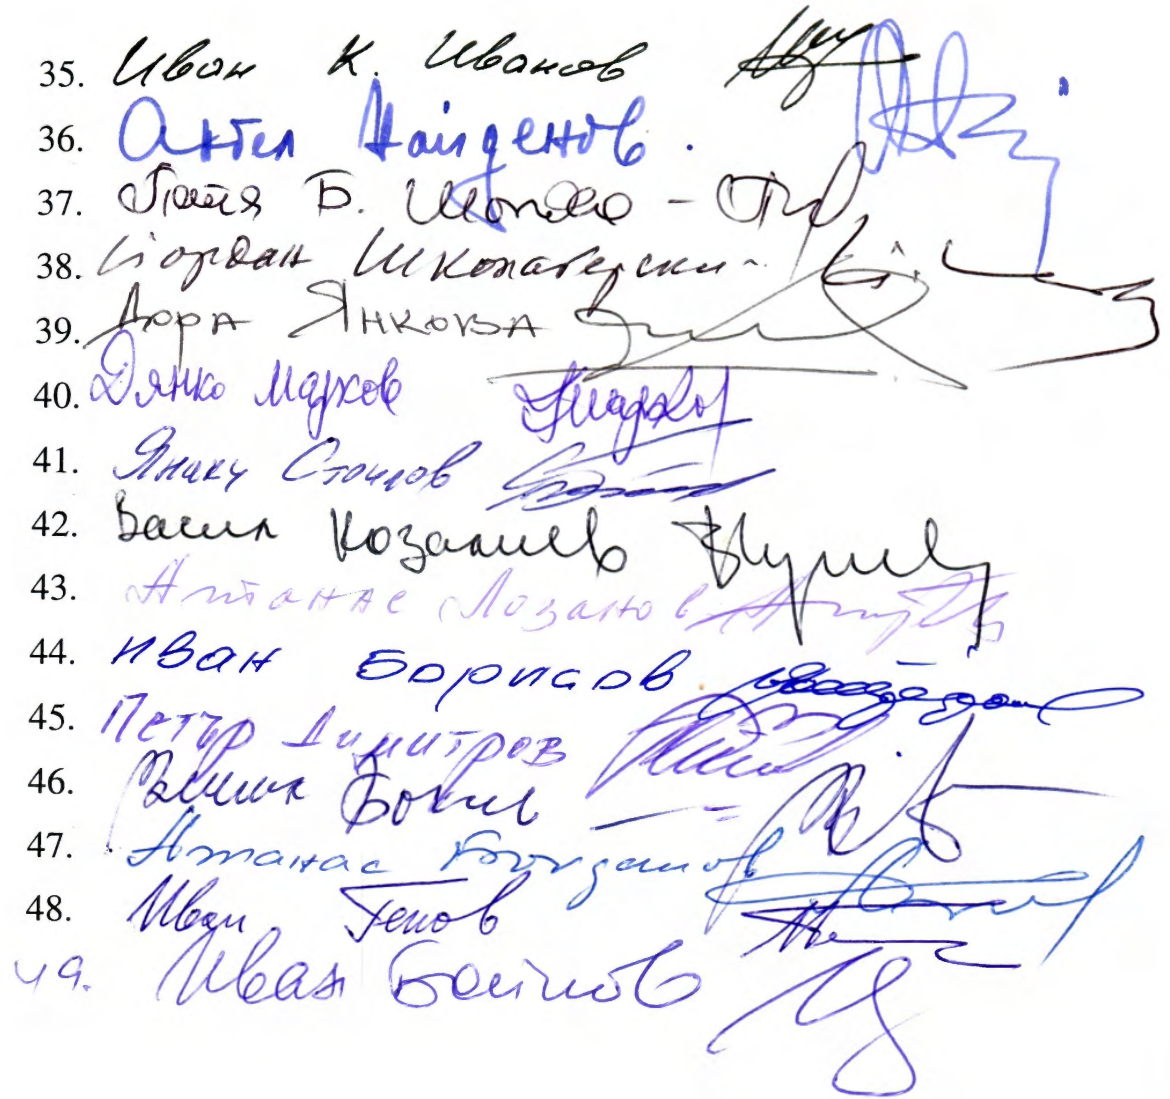 35. Иван К. Иванов
36. Ангел Найденов.
37. Таня Б.
38. Йордан
39. Дора Янкова
40. Дянко Марков
41. Янаки Стоилов
42. Васил Козалиев
43. Атанас Лозанов
44. Иван Борисов
45. Петър Димитров
46.
47. Атанас Богданов
48. Иван Генов
49. Иван Бойков